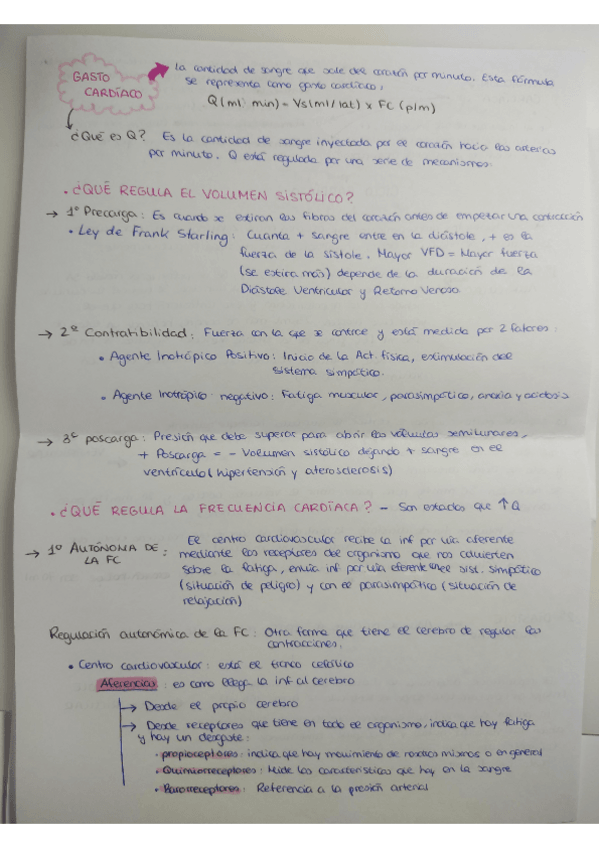 GASTO CARDÍACO
La cantidad de sangre que sale del corazón por minuto. Esta fórmula
se representa como gasto cardíaco:
Q (ml·min) = Vs (ml/lat) x FC (p/m)
¿Qué es Q? Es la cantidad de sangre inyectada por el corazón hacia las arterias
por minuto. Q está regulada por una serie de mecanismos.
• ¿QUÉ REGULA EL VOLUMEN SISTÓLICO?
→ 1º Precarga: Es cuando se estiran las fibras del corazón antes de empezar una contracción
• Ley de Frank Starling: Cuanta + sangre entre en la diástole, + es la
fuerza de la sístole. Mayor VFD = Mayor fuerza
(se estira más) depende de la duración de la
Diástole Ventricular y Retorno Venoso.
→ 2º Contratibilidad: Fuerza con la que se contrae y está medida por 2 factores:
• Agente Inotrópico Positivo: Inicio de la Act. física, estimulación del
sistema simpático.
• Agente Inotrópico negativo: Fatiga muscular, parasimpático, anoxia y acidosis
→ 3º poscarga: Presión que debe superar para abrir las válvulas semilunares,
+ Poscarga = - Volumen sistólico dejando + sangre en el
ventrículo (hipertensión y aterosclerosis)
• ¿QUÉ REGULA LA FRECUENCIA CARDÍACA? - Son estados que ↑Q
→ 1º AUTÓNOMA DE LA FC: El centro cardiovascular recibe la inf por vía aferente
mediante los receptores del organismo que nos advierten
sobre la fatiga, envía inf por vía eferente en el sist. simpático
(situación de peligro) y con el parasimpático (situación de
relajación)
Regulación autonómica de la FC: Otra forma que tiene el cerebro de regular las
contracciones.
• Centro cardiovascular: está el tronco cefálico
Aferencias: es como llega la inf al cerebro
→ Desde el propio cerebro
→ Desde receptores que tiene en todo el organismo, indica que hay fatiga
y hay un desgaste:
• propioceptores: indica que hay movimiento de nosotros mismos o en general
• Quimiorreceptores: Mide las características que hay en la sangre
• Barorreceptores: Referencia a la presión arterial